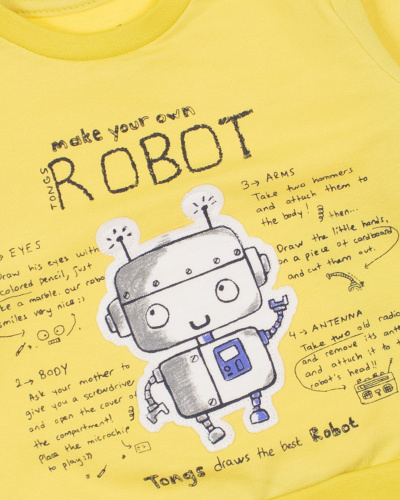 make your own
TONGS
ROBOT
EYES
Draw his eyes with
colored pencil, just
like a marble. our robo
smiles very nice :)
2→ BODY
Ask your mother to
give you a screwdriver
and open the cover of
the compartment!
Place the microchip
to play :))
3→ ARMS
Take two hammers
and attach them to
the body! then...
Draw the little hands,
on a piece of cardboard
and cut them out.
4→ ANTENNA
Take two old radio
and remove its anten
and attach it to t
robot's head!!
Tongs draws the best Robot